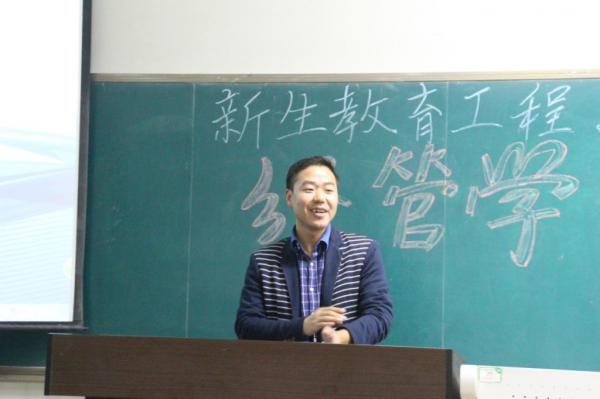 新生教育工程
经管学